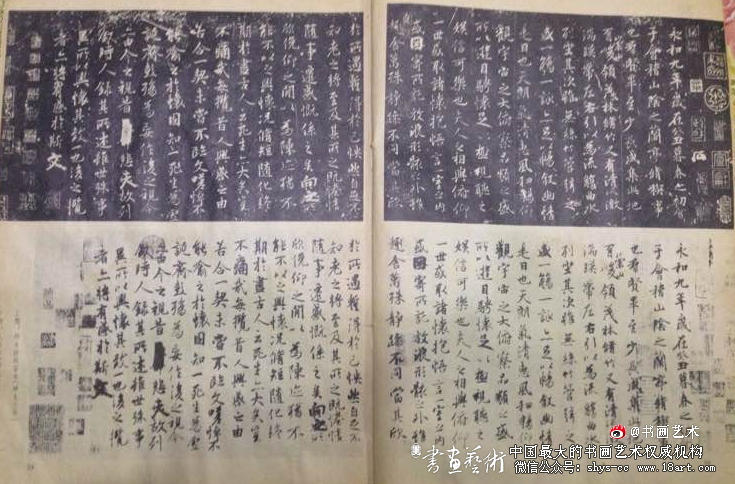 永和九年歲在癸丑暮春之初會
于會稽山陰之蘭亭脩稧事
也羣賢畢至少長咸集此地
有崇山峻領茂林脩竹又有清流激
湍暎帶左右引以為流觴曲水
列坐其次雖無絲竹管弦之
盛一觴一詠亦足以暢敘幽情
是日也天朗氣清惠風和暢仰
觀宇宙之大俯察品類之盛
所以遊目騁懷足以極視聽之
娛信可樂也夫人之相與俯仰
一世或取諸懷抱悟言一室之內
或因寄所託放浪形骸之外雖
趣舍萬殊靜躁不同當其欣
於所遇暫得於己怏然自足不
知老之將至及其所之既惓情
隨事遷感慨係之矣向之所
欣俛仰之間以為陳迹猶不
能不以之興懷況脩短隨化終
期於盡古人云死生亦大矣豈
不痛哉每攬昔人興感之由
若合一契未嘗不臨文嗟悼不
能喻之於懷固知一死生為虛
誕齊彭殤為妄作後之視今
亦由今之視昔悲夫故列
敘時人錄其所述雖世殊事
異所以興懷其致一也後之攬
者亦將有感於斯文
永和九年歲在癸丑暮春之初
于會稽山陰之蘭亭脩稧事
也羣賢畢至少長咸集此地
有崇山峻領茂林脩竹又有清流激
湍暎帶左右引以為流觴曲水
列坐其次雖無絲竹管弦之
盛一觴一詠亦足以暢敘幽情
是日也天朗氣清惠風和暢仰
觀宇宙之大俯察品類之盛
所以遊目騁懷足以極視聽之
娛信可樂也夫人之相與俯仰
一世或取諸懷抱悟言一室之內
或因寄所託放浪形骸之外雖
趣舍萬殊靜躁不同當其欣
於所遇暫得於己怏然自足不
知老之將至及其所之既惓情
隨事遷感慨係之矣向之所
欣俛仰之間以為陳迹猶不
能不以之興懷況脩短隨化終
期於盡古人云死生亦大矣豈
不痛哉每攬昔人興感之由
若合一契未嘗不臨文嗟悼不
能喻之於懷固知一死生為虛
誕齊彭殤為妄作後之視今
亦由今之視昔悲夫故列
敘時人錄其所述雖世殊事
異所以興懷其致一也後之攬
者亦將有感於斯文
@书画艺术
書畫藝術
中国最大的书画艺术权威机构
微信公众号：shys-cc www.18art.com